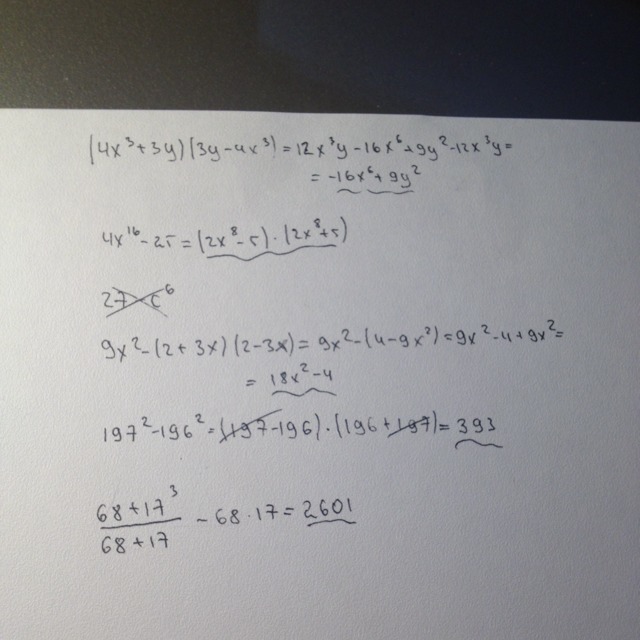 (4x³+3y)(3y-4x³)=12x³y-16x⁶+9y²-12x³y=
=-16x⁶+9y²
4x¹⁶-25=(2x⁸-5)·(2x⁸+5)
9x²-(2+3x)(2-3x)=9x²-(4-9x²)=9x²-4+9x²=
=18x²-4
197²-196²=(197-196)·(196+197)=393
68+17³
68+17
-68·17=2601